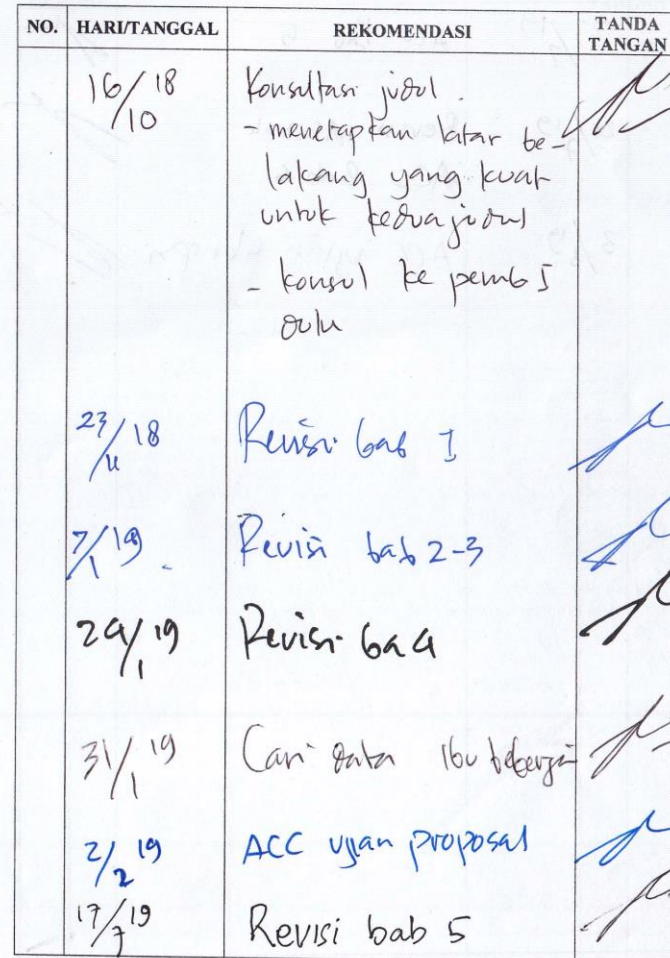 NO. HARI/TANGGAL REKOMENDASI TANDA TANGAN
16/10 18 Konsultasi judul.
- menetapkan latar be-
lakang yang kuat
untuk kedua judul
- konsul ke pemb I
dulu
23/11 18 Revisi bab I
7/1 19. Revisi bab 2-3
29/1 19 Revisi ba 4
31/1 19 Cari data ibu bekerja
2/2 19 ACC ujian proposal
17/7 19 Revisi bab 5